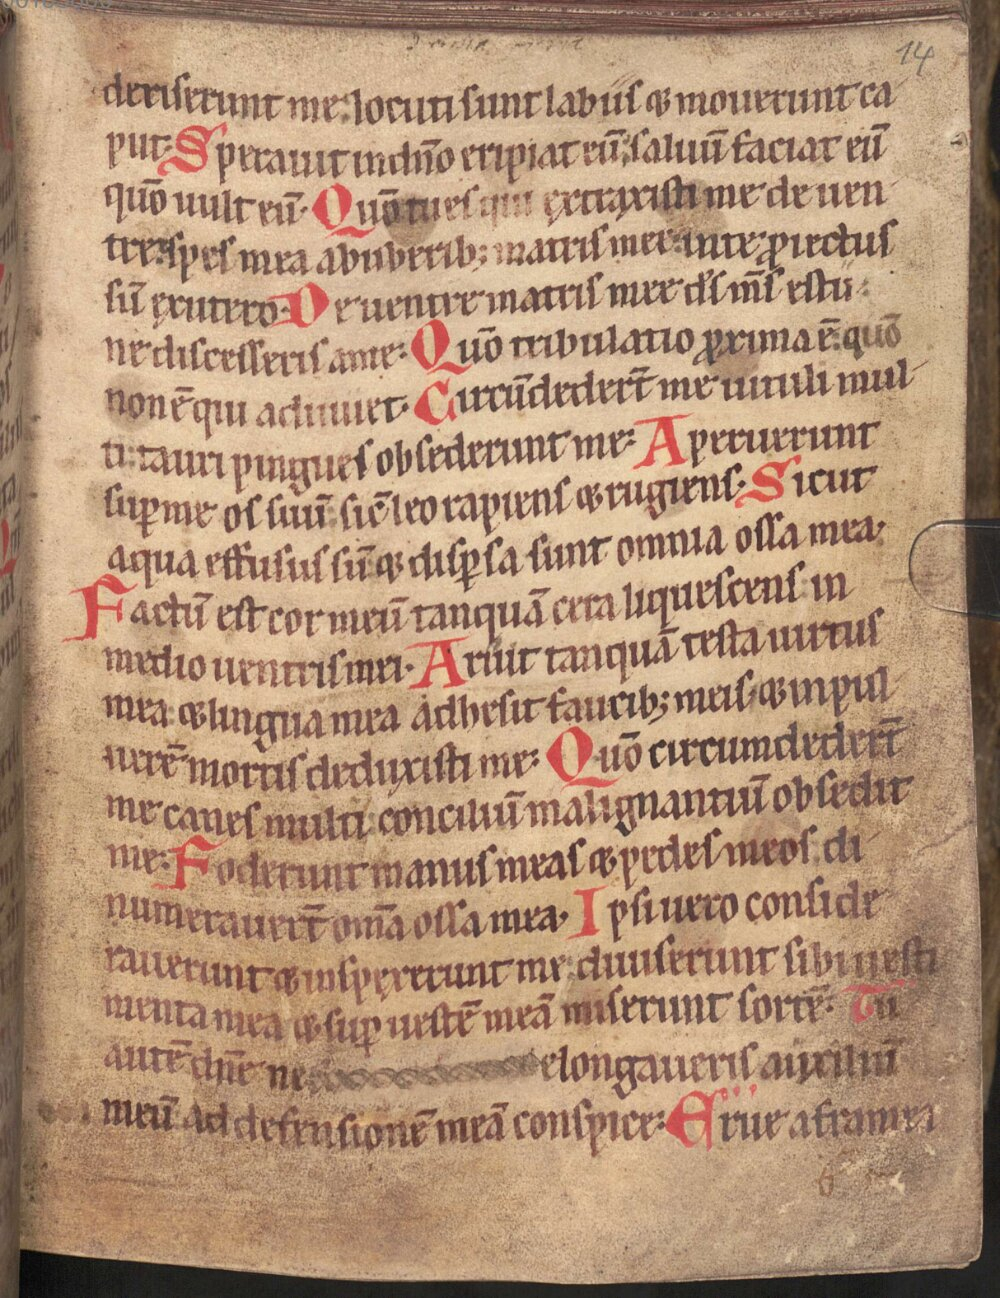 14
deriserunt me: locuti sunt labiis & mouerunt ca
put. Sperauit in dn̄o eripiat eū: saluū faciat eū
quō uult eū. Quō tu es qui extraxisti me de uen
tre: spes mea ab uberib; matris mee: in te p̄iectus
sū ex utero. De uentre matris mee d̄s m̄s es tu:
ne discesseris a me. Quō tribulatio p̄xima ē: quō
non ē qui adiuuet. Circūdeder̄t me uituli mul
ti: tauri pingues obsederunt me. Aperuerunt
sup me os suū: sic̄ leo rapiens & rugiens. Sicut
aqua effusus sū & disp̱sa sunt omnia ossa mea.
Factū est cor meū tanquā cera liquescens: in
medio uentris mei. Aruit tanquā testa uirtus
mea: & lingua mea adhesit faucib; meis: & in pul
uerē mortis deduxisti me. Quō circumdeder̄t
me canes multi: conciliū malignantiū obsedit
me: Foderunt manus meas & pedes meos: di
numerauer̄t om̄a ossa mea. Ipsi uero conside
rauerunt & inspexerunt me: diuiserunt sibi uesti
menta mea & sup uestē meā miserunt sortē. Tu
autē dn̄e ne elongaueris auxiliū
meū ad defensionē meā conspice. Erue a framea
6